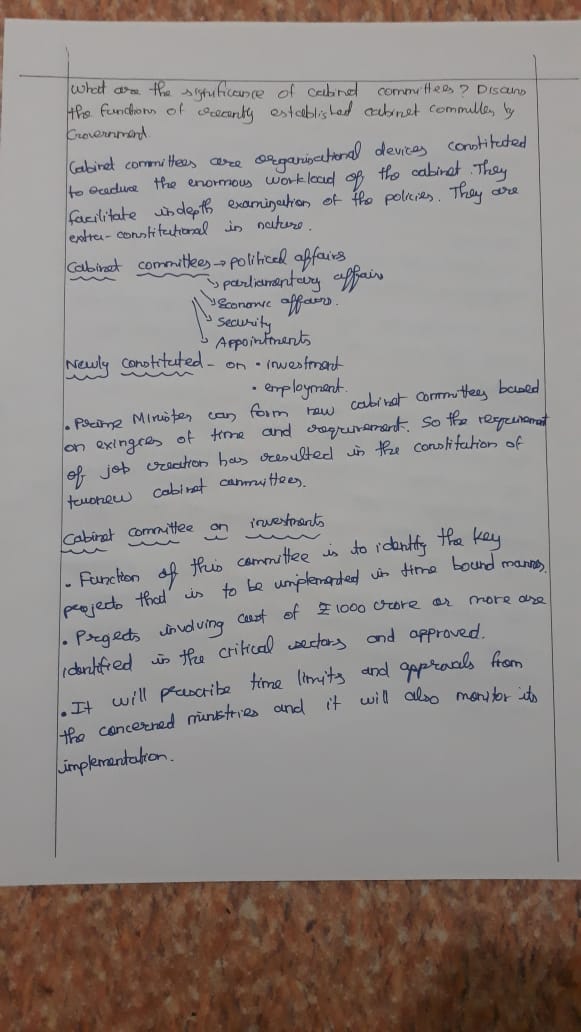 What are the significance of cabinet committees? Discuss
the functions of recently established cabinet committees by
Government.
Cabinet committees are organisational devices constituted
to reduce the enormous workload of the cabinet. They
facilitate indepth examination of the policies. They are
extra-constitutional in nature.
Cabinet committees → political affairs
↘ parliamentary affairs
↘ Economic affairs.
↘ security
↘ Appointments
Newly constituted - on • investment
• employment.
• Prime Minister can form new cabinet committees based
on exingces of time and requirement. So the requirement
of job creation has resulted in the constitution of
two new cabinet committees.
Cabinet committee on investments
• Function of this committee is to identify the key
projects that is to be implemented in time bound manner.
• Projects involving cost of ₹1000 crore or more are
identified in the critical sectors and approved.
• It will prescribe time limits and approvals from
the concerned ministries and it will also monitor its
implementation.